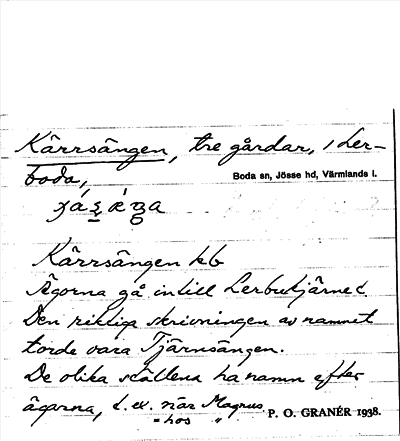 Kärrsängen, tre gårdar, i Ler-
boda,
Boda sn, Jösse hd, Värmlands l.
Kärrsängen kb
Ägorna gå intill Lerbutjärnet.
Den riktiga skrivningen av namnet
torde vara Tjärnsängen.
De olika ställena ha namn efter
ägarna, t. ex. när Magnus
= hos "
P. O. GRANÉR 1938.